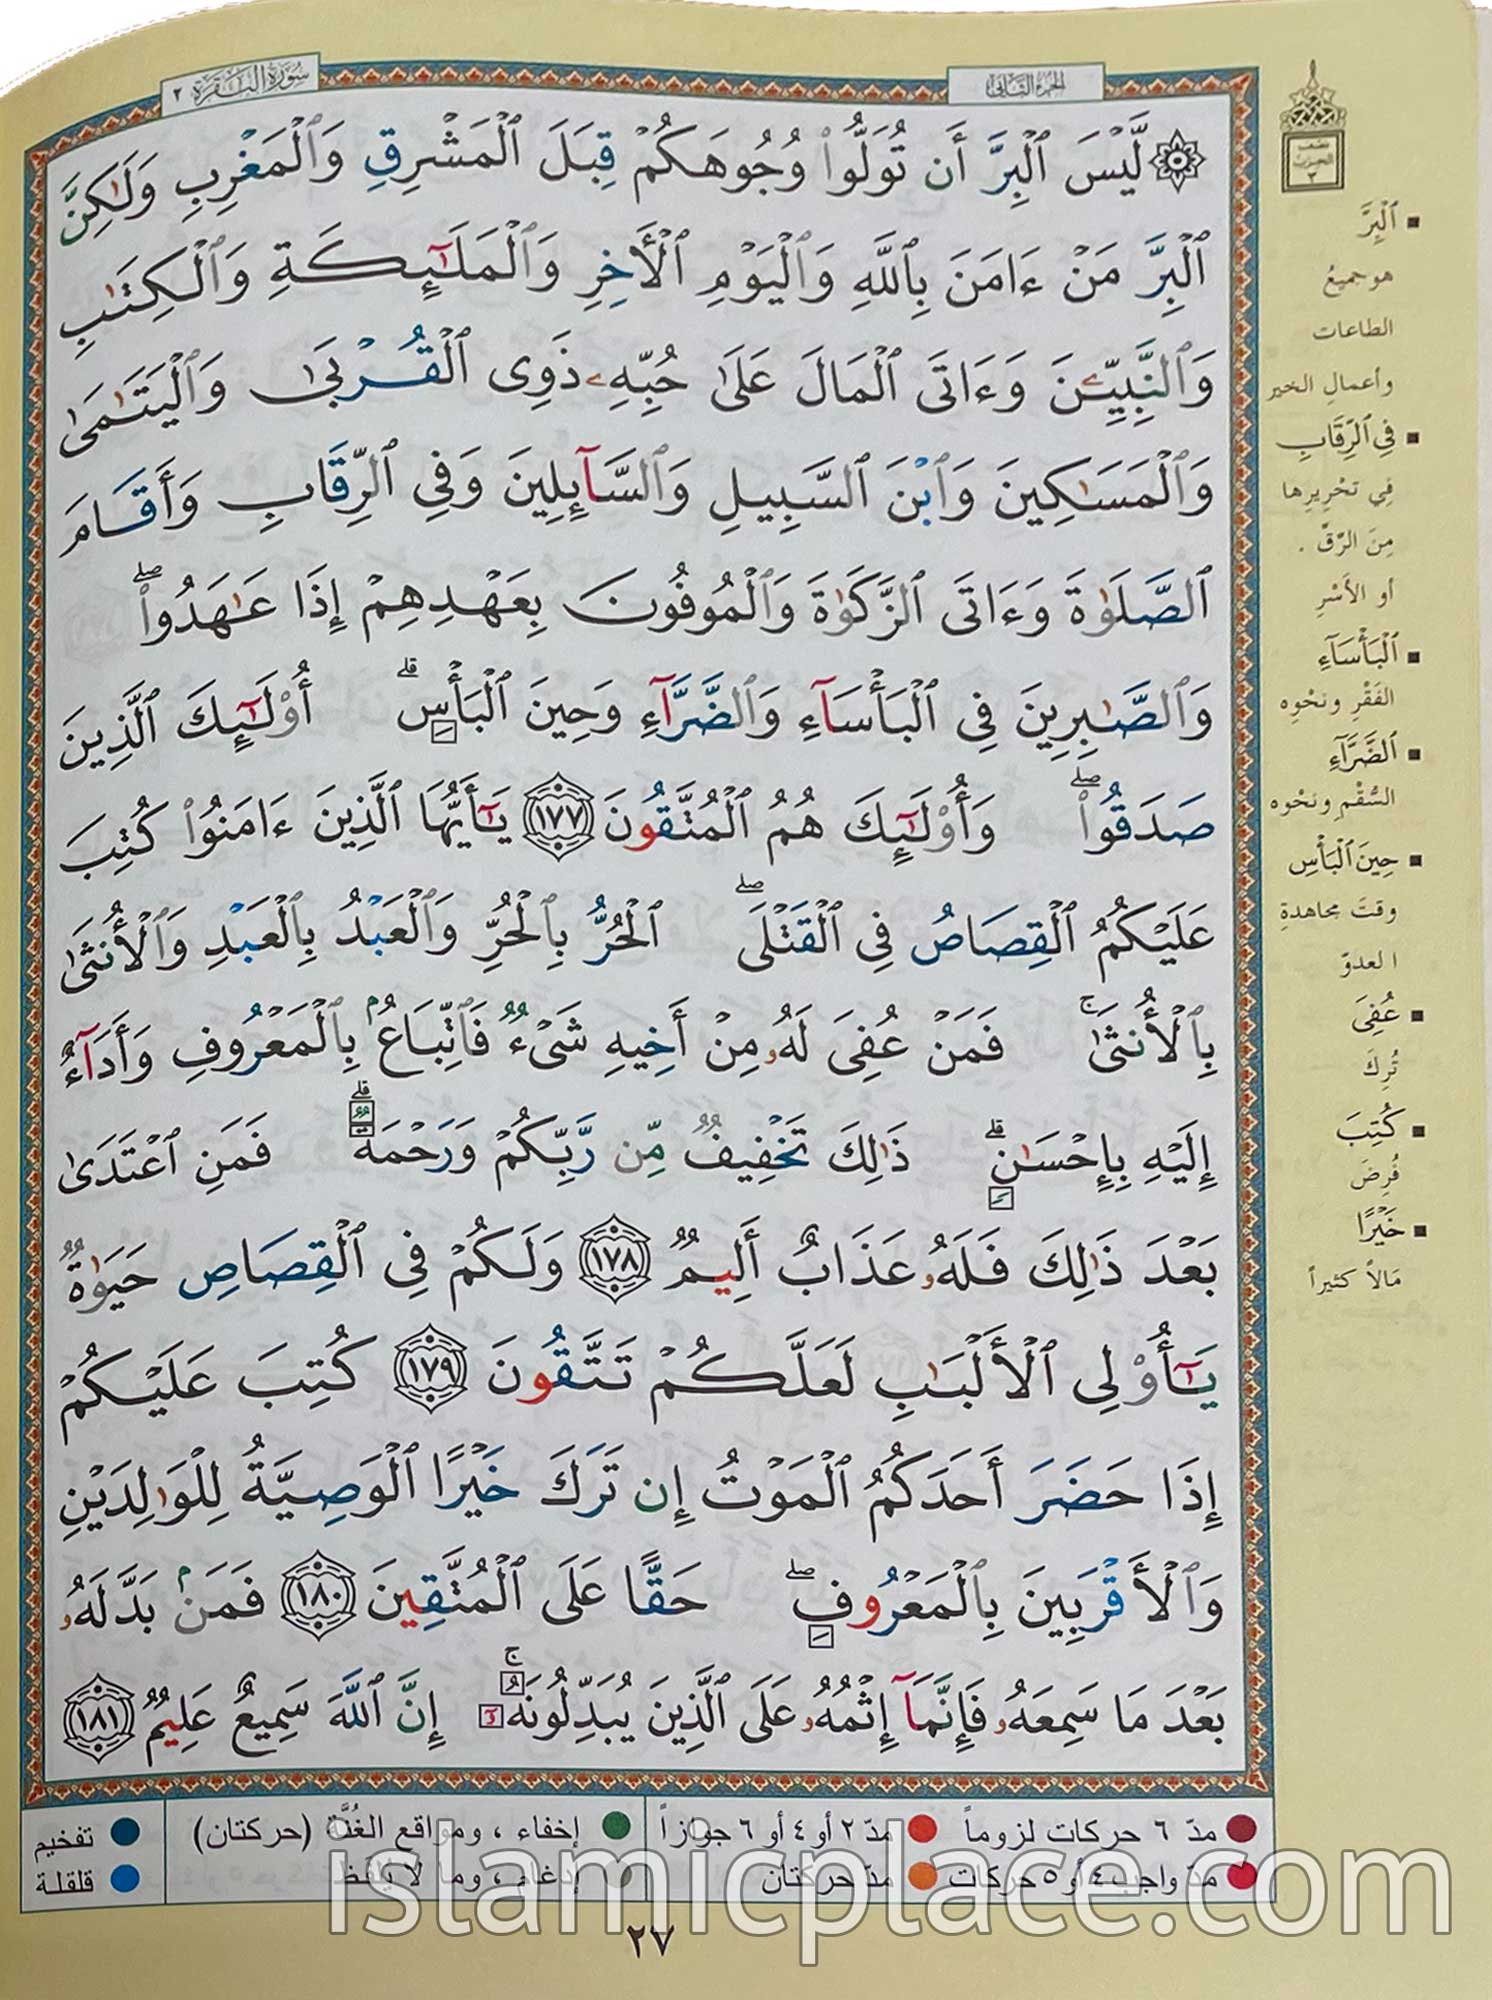 سُورَةُ البَقَرَةِ ٢
الجُزءُ الثَّانِي
۞ لَّيْسَ ٱلْبِرَّ أَن تُوَلُّوا۟ وُجُوهَكُمْ قِبَلَ ٱلْمَشْرِقِ وَٱلْمَغْرِبِ وَلَٰكِنَّ
ٱلْبِرَّ مَنْ ءَامَنَ بِٱللَّهِ وَٱلْيَوْمِ ٱلْأَخِرِ وَٱلْمَلَٰٓئِكَةِ وَٱلْكِتَٰبِ
وَٱلنَّبِيِّـۧنَ وَءَاتَى ٱلْمَالَ عَلَىٰ حُبِّهِۦ ذَوِى ٱلْقُرْبَىٰ وَٱلْيَتَٰمَىٰ
وَٱلْمَسَٰكِينَ وَٱبْنَ ٱلسَّبِيلِ وَٱلسَّآئِلِينَ وَفِى ٱلرِّقَابِ وَأَقَامَ
ٱلصَّلَوٰةَ وَءَاتَى ٱلزَّكَوٰةَ وَٱلْمُوفُونَ بِعَهْدِهِمْ إِذَا عَٰهَدُوا۟ۖ
وَٱلصَّٰبِرِينَ فِى ٱلْبَأْسَآءِ وَٱلضَّرَّآءِ وَحِينَ ٱلْبَأْسِۗ أُو۟لَٰٓئِكَ ٱلَّذِينَ
صَدَقُوا۟ۖ وَأُو۟لَٰٓئِكَ هُمُ ٱلْمُتَّقُونَ ١٧٧ يَٰٓأَيُّهَا ٱلَّذِينَ ءَامَنُوا۟ كُتِبَ
عَلَيْكُمُ ٱلْقِصَاصُ فِى ٱلْقَتْلَىۖ ٱلْحُرُّ بِٱلْحُرِّ وَٱلْعَبْدُ بِٱلْعَبْدِ وَٱلْأُنثَىٰ
بِٱلْأُنثَىٰۚ فَمَنْ عُفِىَ لَهُۥ مِنْ أَخِيهِ شَىْءٌ فَٱتِّبَاعٌۢ بِٱلْمَعْرُوفِ وَأَدَآءٌ
إِلَيْهِ بِإِحْسَٰنٍۗ ذَٰلِكَ تَخْفِيفٌ مِّن رَّبِّكُمْ وَرَحْمَةٌۗ فَمَنِ ٱعْتَدَىٰ
بَعْدَ ذَٰلِكَ فَلَهُۥ عَذَابٌ أَلِيمٌ ١٧٨ وَلَكُمْ فِى ٱلْقِصَاصِ حَيَوٰةٌ
يَٰٓأُو۟لِى ٱلْأَلْبَٰبِ لَعَلَّكُمْ تَتَّقُونَ ١٧٩ كُتِبَ عَلَيْكُمْ
إِذَا حَضَرَ أَحَدَكُمُ ٱلْمَوْتُ إِن تَرَكَ خَيْرًا ٱلْوَصِيَّةُ لِلْوَٰلِدَيْنِ
وَٱلْأَقْرَبِينَ بِٱلْمَعْرُوفِۖ حَقًّا عَلَى ٱلْمُتَّقِينَ ١٨٠ فَمَنۢ بَدَّلَهُۥ
بَعْدَ مَا سَمِعَهُۥ فَإِنَّمَآ إِثْمُهُۥ عَلَى ٱلَّذِينَ يُبَدِّلُونَهُۥٓۚ إِنَّ ٱللَّهَ سَمِيعٌ عَلِيمٌ ١٨١
نصف
الحزب
٣
ٱلْبِرَّ
هو جميعُ
الطاعات
وأعمالِ الخير
فِى ٱلرِّقَابِ
فِي تحْرِيرِها
مِنَ الرِّقِّ .
أو الأَسْرِ
ٱلْبَأْسَآءِ
الفَقْرِ ونحْوِه
ٱلضَّرَّآءِ
السُّقْمِ ونحْوِه
حِينَ ٱلْبَأْسِ
وقتَ مجاهدةِ
العدوّ
عُفِىَ
تُرِكَ
كُتِبَ
فُرِضَ
خَيْرًا
مَالاً كثيراً
مدّ ٦ حركات لزوماً
مدّ ٢ أو ٤ أو ٦ جوازاً
إخفاء ، ومواقع الغُنَّة (حركتان)
تفخيم
مدّ واجب ٤ أو ٥ حركات
مدّ حركتان
إدغام ، وما لا يلفظ
قلقلة
islamicplace.com
٢٧